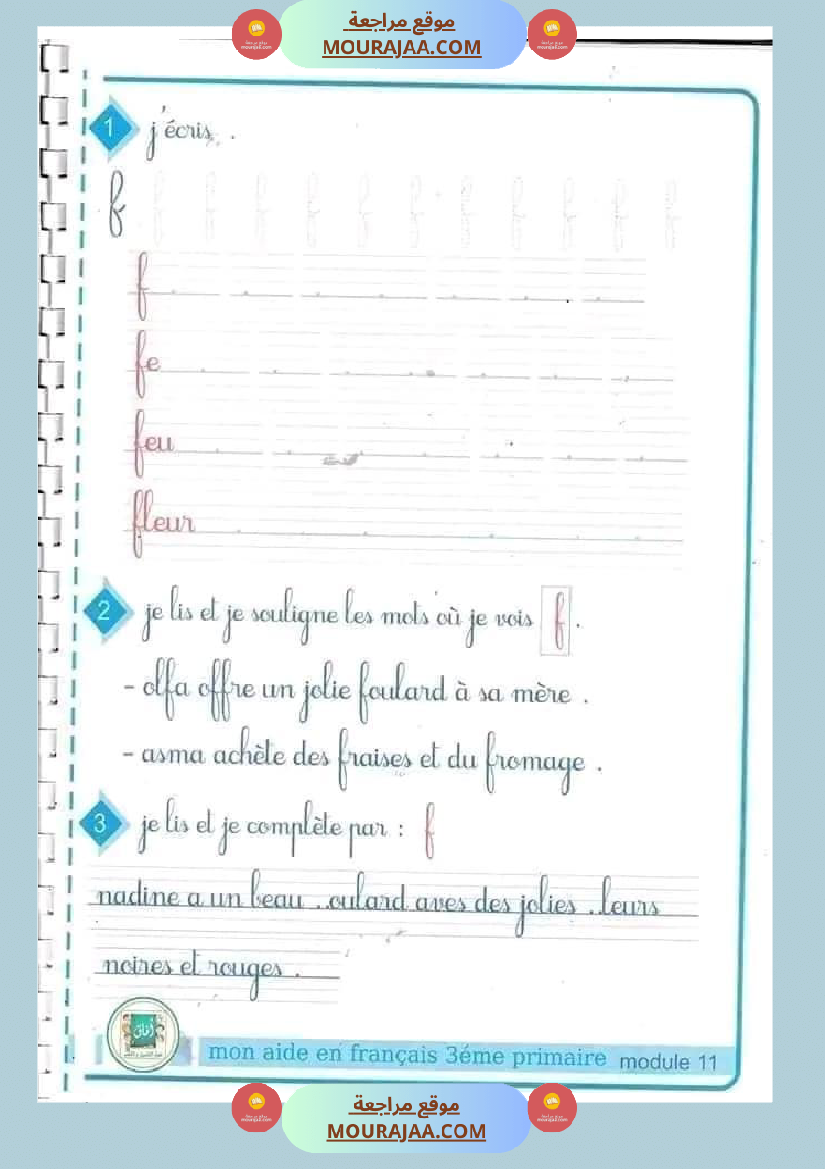 موقع مراجعة
MOURAJAA.COM
1 j'écris .
f f f f f f f f f f f f
f
fe
feu
fleur
2 je lis et je souligne les mots où je vois f .
- olfa offre un jolie foulard à sa mère .
- asma achète des fraises et du fromage .
3 je lis et je complète par : f
nadine a un beau ..oulard aves des jolies ..leurs
noires et rouges .
mon aide en français 3éme primaire module 11
موقع مراجعة
MOURAJAA.COM